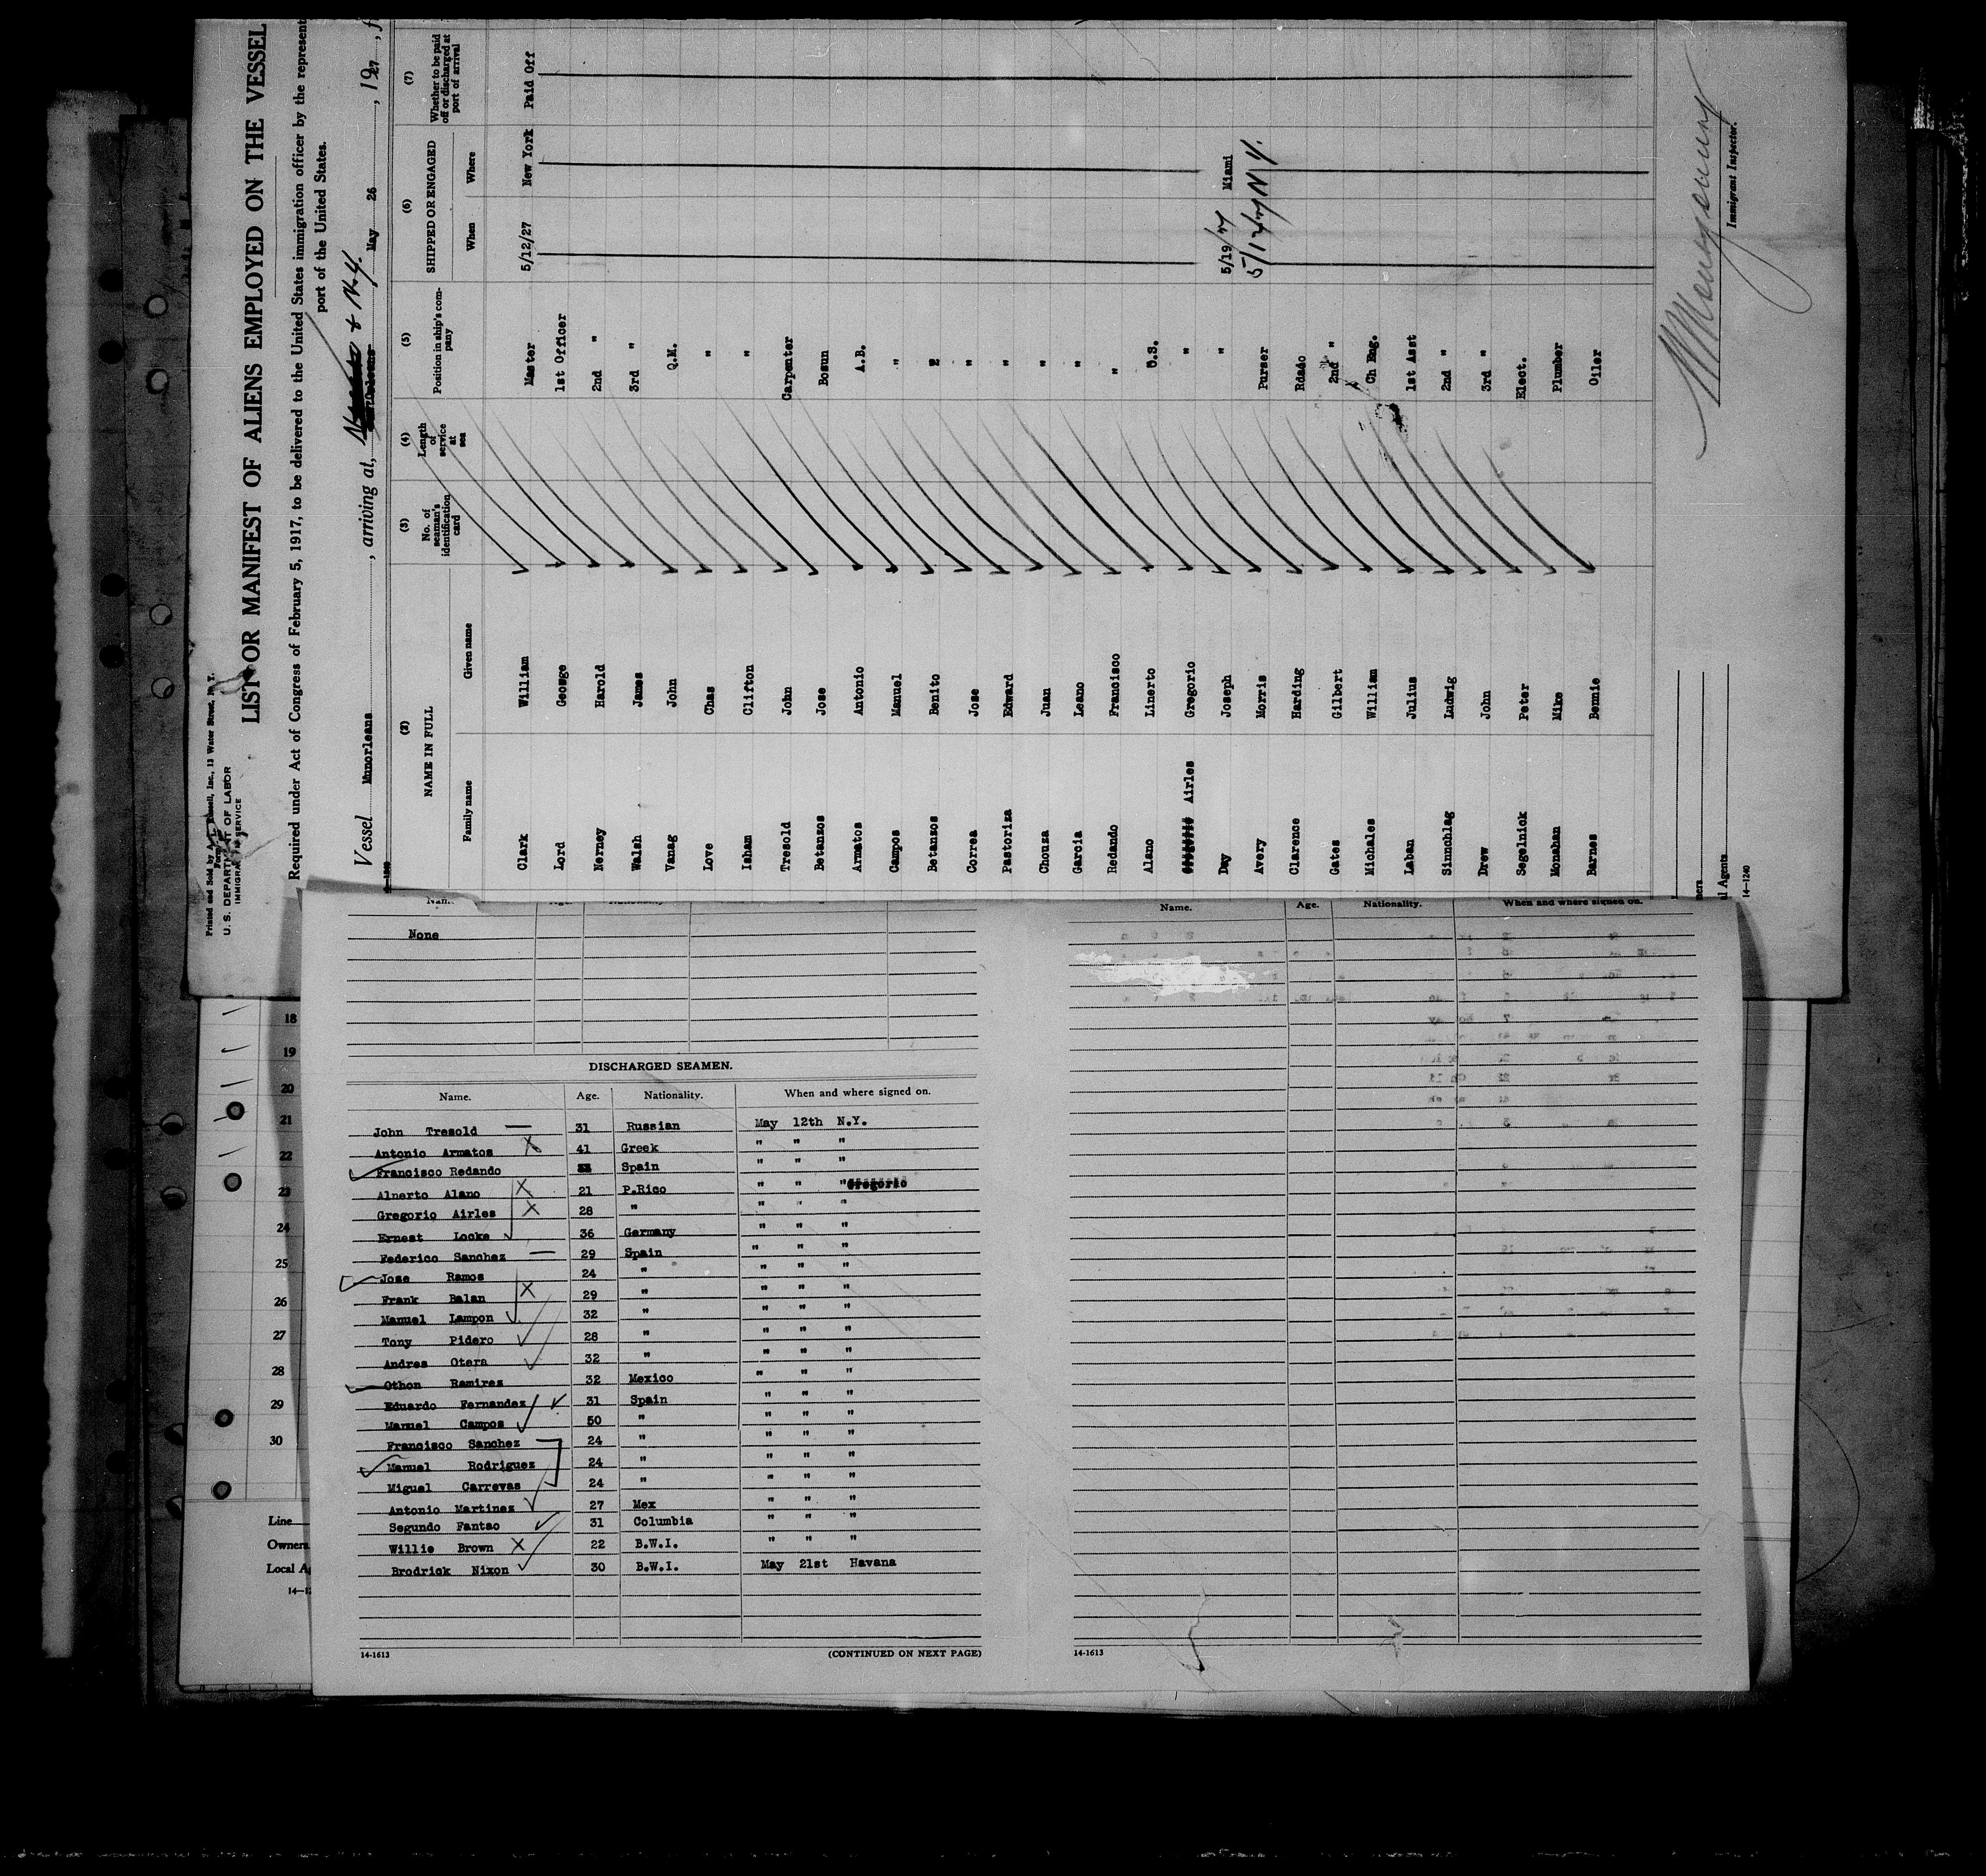 Printed and Sold by A. L. Russell, Inc., 13 Water Street, N. Y.
U. S. DEPARTMENT OF LABOR
IMMIGRATION SERVICE
LIST OR MANIFEST OF ALIENS EMPLOYED ON THE VESSEL
Required under Act of Congress of February 5, 1917, to be delivered to the United States immigration officer by the represent
port of the United States.
Vessel Munorleans , arriving at, N.Y. May 26 , 1927 , f
(2) (3) (4) (5) (6) (7)
NAME IN FULL No. of seaman's identification card Length of service at sea Position in ship's company SHIPPED OR ENGAGED Whether to be paid off or discharged at port of arrival
Family name Given name When Where
Clark William Master 5/12/27 New York Paid Off
Lord George 1st Officer
Nerney Harold 2nd "
Walsh James 3rd "
Vanag John Q.M.
Love Chas "
Isham Clifton "
Tresold John Carpenter
Betanzos Jose Bosun
Armatos Antonio A.B.
Campos Manuel "
Betanzos Benito "
Correa Jose "
Pastoriza Edward "
Chouza Juan "
Garcia Leano "
Redando Francisco "
Alano Linerto O.S.
Airles Gregorio "
Day Joseph " 5/19/27 Miami
Avery Morris Purser 5/12/27 N Y.
Clarence Harding Rdado
Gates Gilbert 2nd "
Michales William Ch Eng.
Laban Julius 1st Asst
Sinnchlag Ludwig 2nd "
Drew John 3rd "
Segelnick Peter Elect.
Monahan Mike Plumber
Barnes Bennie Oiler
Immigrant Inspector.
ners
l Agents
14—1240
Name. Age. Nationality. When and where signed on.
None
DISCHARGED SEAMEN.
Name. Age. Nationality. When and where signed on.
John Tresold 31 Russian May 12th N.Y.
Antonio Armatos 41 Greek " " "
Francisco Redando Spain " " "
Alnerto Alano 21 P.Rico " " " Gregorio
Gregorio Airles 28 " " " "
Ernest Locke 36 Germany " " "
Federico Sanchez 29 Spain " " "
Jose Ramos 24 " " " "
Frank Balan 29 " " " "
Manuel Lampon 32 " " " "
Tony Pidero 28 " " " "
Andres Otera 32 " " " "
Othon Ramirez 32 Mexico " " "
Eduardo Fernandez 31 Spain " " "
Manuel Campos 50 " " " "
Francisco Sanchez 24 " " " "
Manuel Rodriguez 24 " " " "
Miguel Carrevas 24 " " " "
Antonio Martinez 27 Mex " " "
Segundo Fantao 31 Columbia " " "
Willie Brown 22 B.W.I. " " "
Brodrick Nixon 30 B.W.I. May 21st Havana
14-1613 (CONTINUED ON NEXT PAGE)
14-1613
18
19
20
21
22
23
24
25
26
27
28
29
30
Line
Owners
Local A
14—12